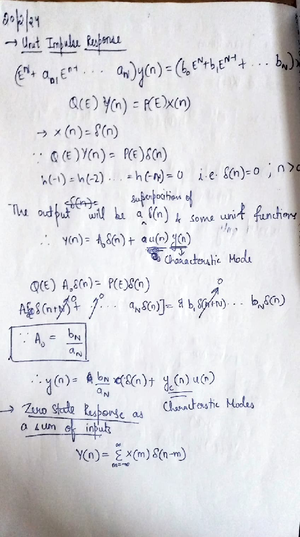 20/2/24
→ Unit Impulse Response
(E^N + a_{n1} E^{n-1} ..... a_n) y(n) = (b_0 E^N + b_1 E^{N-1} + ... b_N)
Q(E) Y(n) = P(E) x(n)
→ x(n) = δ(n)
∵ Q(E) Y(n) = P(E) δ(n)
h(-1) = h(-2) ... = h(-N) = 0 i.e. δ(n) = 0 ; n >
superposition of
The output will be a δ(n) & some unit functions
∴ Y(n) = A_0 δ(n) + u(n) y(n)
Characterstic Mode
Q(E) A_0 δ(n) = P(E) δ(n)
A_0[δ(n+N) + ... a_N δ(n)] = b_1 δ(n+N) ... b_N δ(n)
∵ A_0 = b_N / a_N
∴ y(n) = b_N / a_N δ(n) + y_c(n) u(n)
Characterstic Modes
→ Zero State Response as
a sum of inputs
Y(n) = Σ_{m=-∞}^{∞} x(m) δ(n-m)